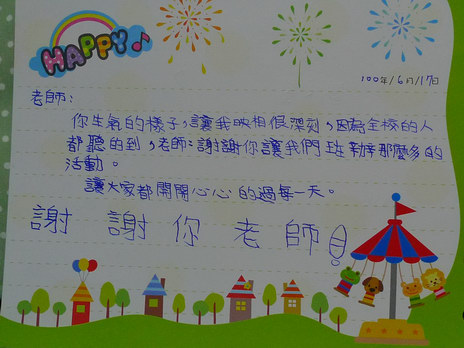 HAPPY
100年/6月/17日
老師:
你生氣的樣子,讓我映相很深刻,因為全校的人
都聽的到,老師:謝謝你讓我們班辦那麼多的
活動。
讓大家都開開心心的過每一天。
謝謝你老師!